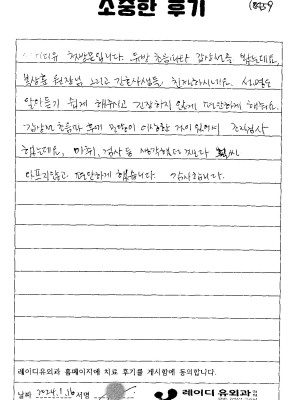 소중한 후기
첫방문입니다. 유방 초음파와 갑상선을 봤는데요,
원장님 그리고 간호사님들 친절하시네요. 설명도
알아듣기 쉽게 해주시고 긴장하지 않게 편안하게 해줘요.
갑상선 초음파 후에 모양이 이상한 것이 있어서 조직검사
했는데요, 마취, 검사 등 생각했던 것보다 훨씬
아프지않고 편안하게 했습니다. 감사합니다.
레이디유외과 홈페이지에 치료 후기를 게시함에 동의합니다.
날짜 2024.1.16 서명
레이디 유외과